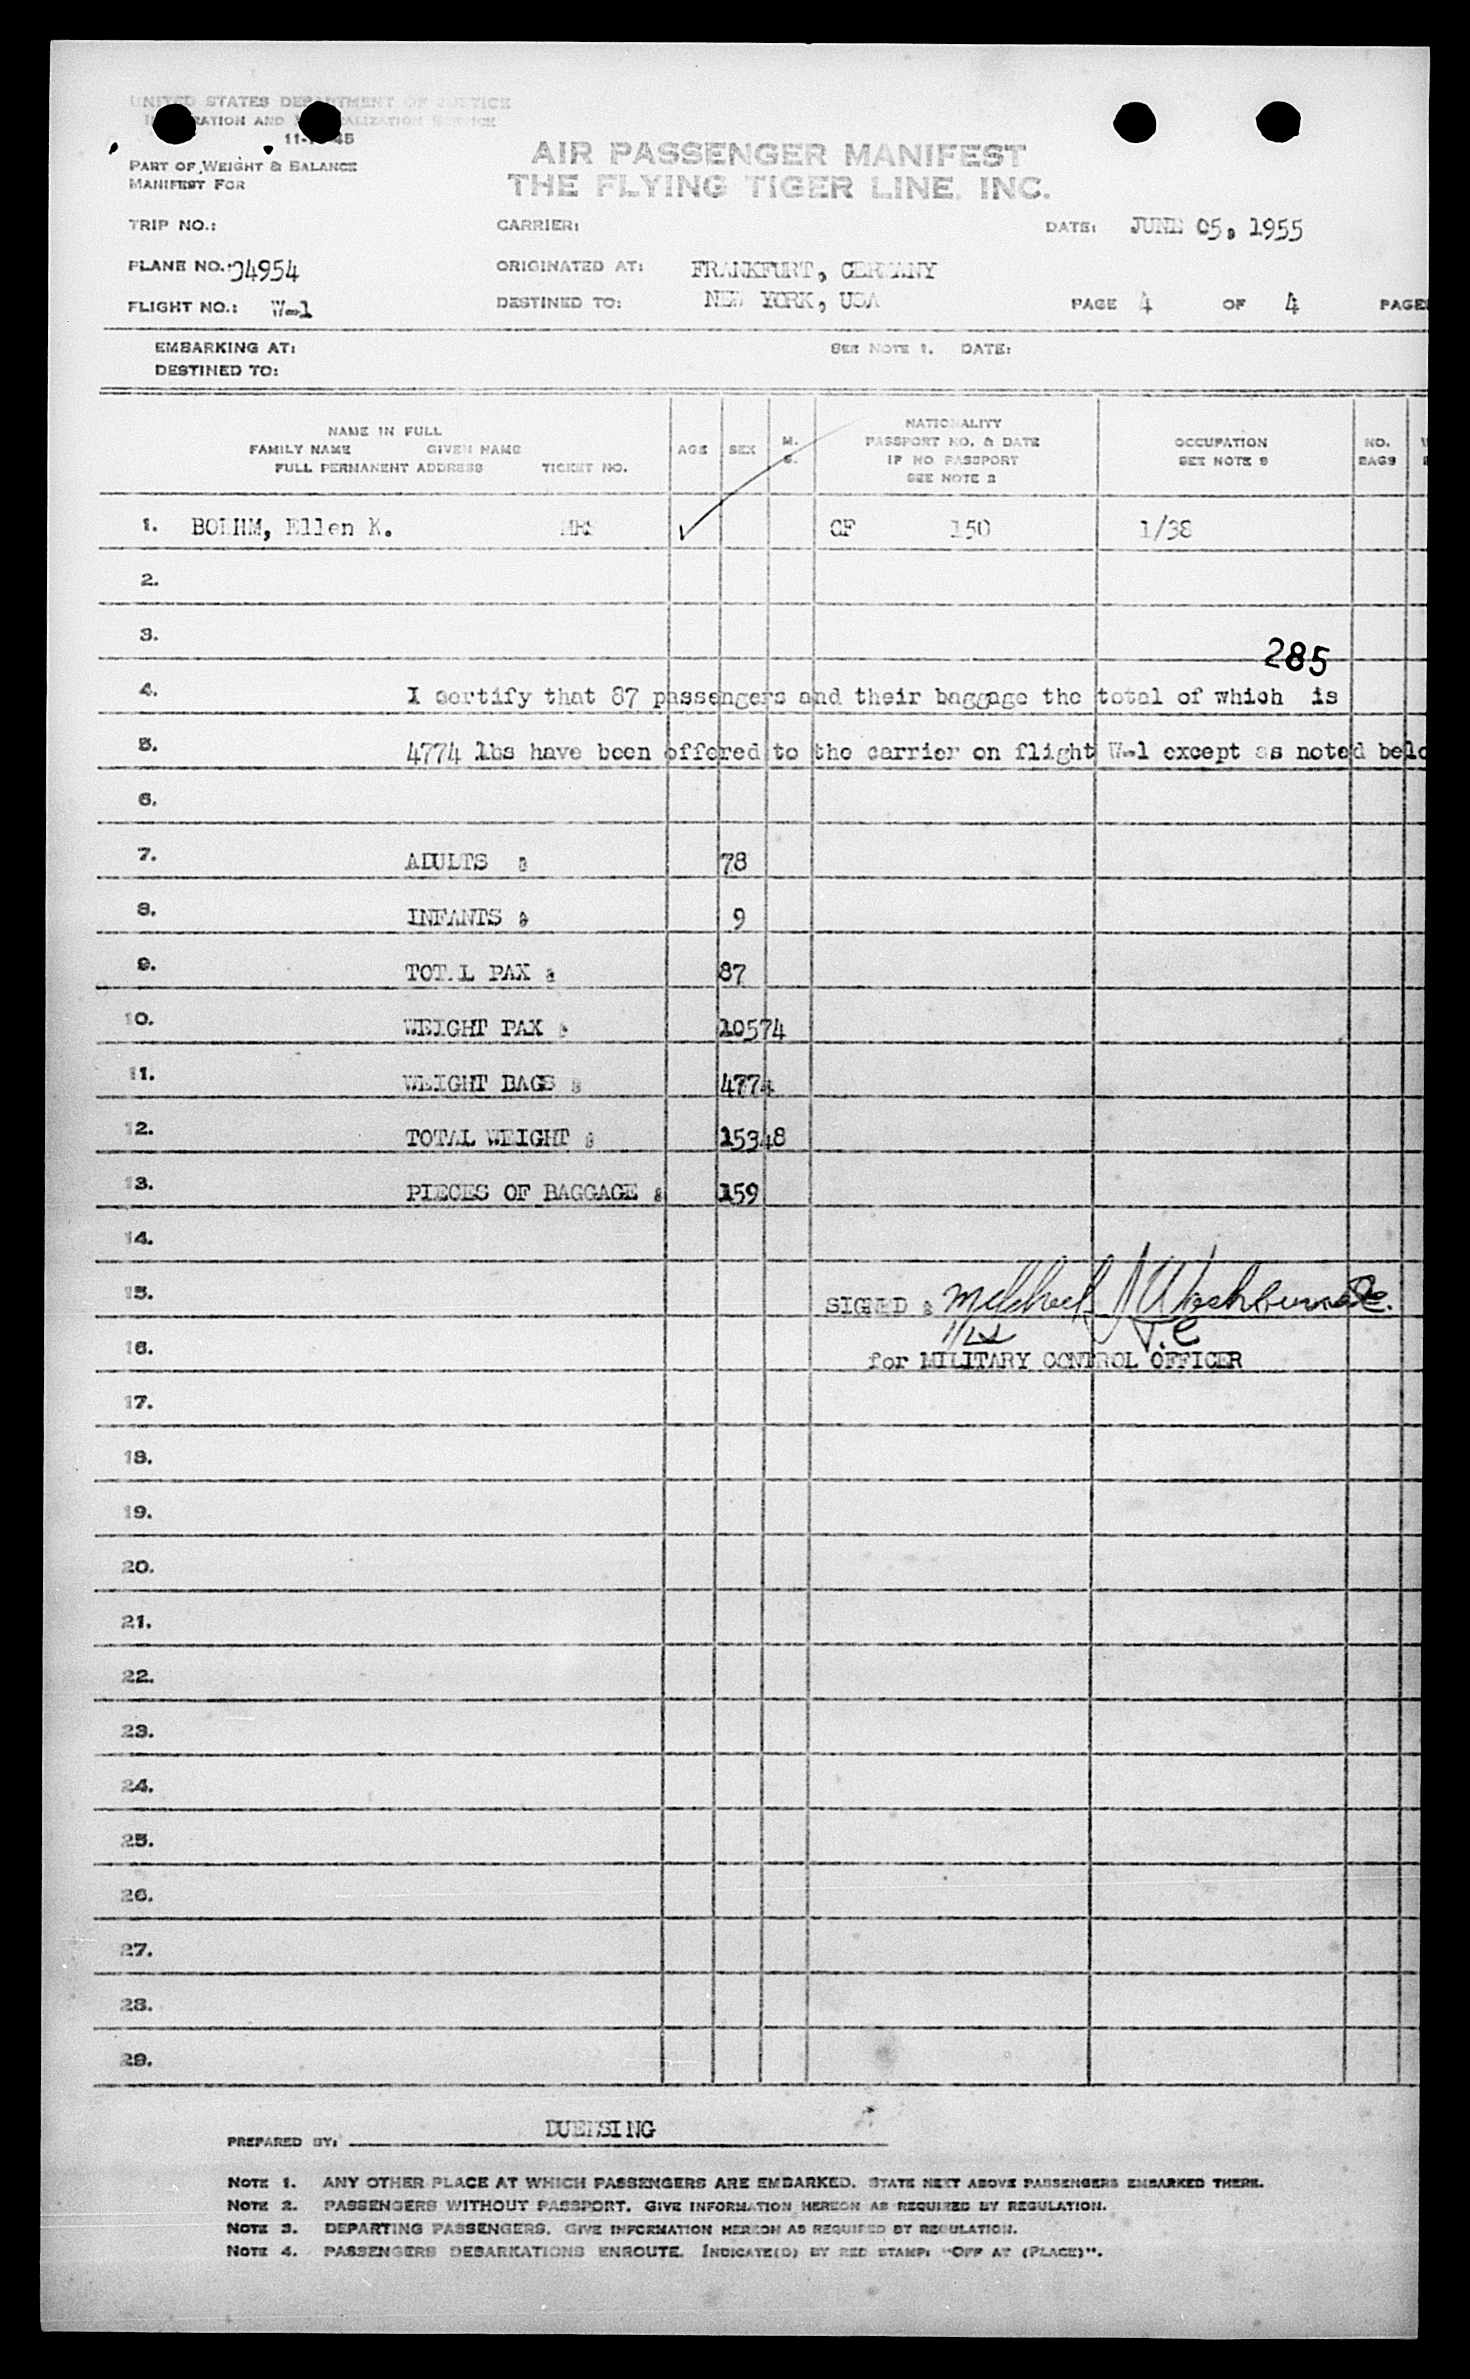 UNITED STATES DEPARTMENT OF JUSTICE
AND SERVICE
PART OF WEIGHT & BALANCE
MANIFEST FOR
AIR PASSENGER MANIFEST
THE FLYING TIGER LINE, INC.
TRIP NO.: CARRIER: DATE: JUNE 05, 1955
PLANE NO. 04954 ORIGINATED AT: FRANKFURT, GERMANY
FLIGHT NO.: W-1 DESTINED TO: NEW YORK, USA PAGE 4 OF 4 PAGE
EMBARKING AT: SEE NOTE 1. DATE:
DESTINED TO:
NAME IN FULL
FAMILY NAME GIVEN NAME
FULL PERMANENT ADDRESS TICKET NO.
AGE SEX M. S.
NATIONALITY
PASSPORT NO. & DATE
IF NO PASSPORT
SEE NOTE 2
OCCUPATION
SEE NOTE 3
NO.
BAGS
1. BOEHM, Ellen K. MRS CF 150 1/38
2.
3.
285
4. I certify that 87 passengers and their baggage the total of which is
5. 4774 lbs have been offered to the carrier on flight W-1 except as noted belo
6.
7. ADULTS : 78
8. INFANTS : 9
9. TOT.L PAX : 87
10. WEIGHT PAX : 10574
11. WEIGHT BAGS : 4774
12. TOTAL WEIGHT : 15348
13. PIECES OF BAGGAGE : 159
14.
15. SIGNED :
T.C
16. for MILITARY CONTROL OFFICER
17.
18.
19.
20.
21.
22.
23.
24.
25.
26.
27.
28.
29.
PREPARED BY: DUENSING
NOTE 1. ANY OTHER PLACE AT WHICH PASSENGERS ARE EMBARKED. STATE NEXT ABOVE PASSENGERS EMBARKED THERE.
NOTE 2. PASSENGERS WITHOUT PASSPORT. GIVE INFORMATION HEREON AS REQUIRED BY REGULATION.
NOTE 3. DEPARTING PASSENGERS. GIVE INFORMATION HEREON AS REQUIRED BY REGULATION.
NOTE 4. PASSENGERS DEBARKATIONS ENROUTE. INDICATE(D) BY RED STAMP: "OFF AT (PLACE)".